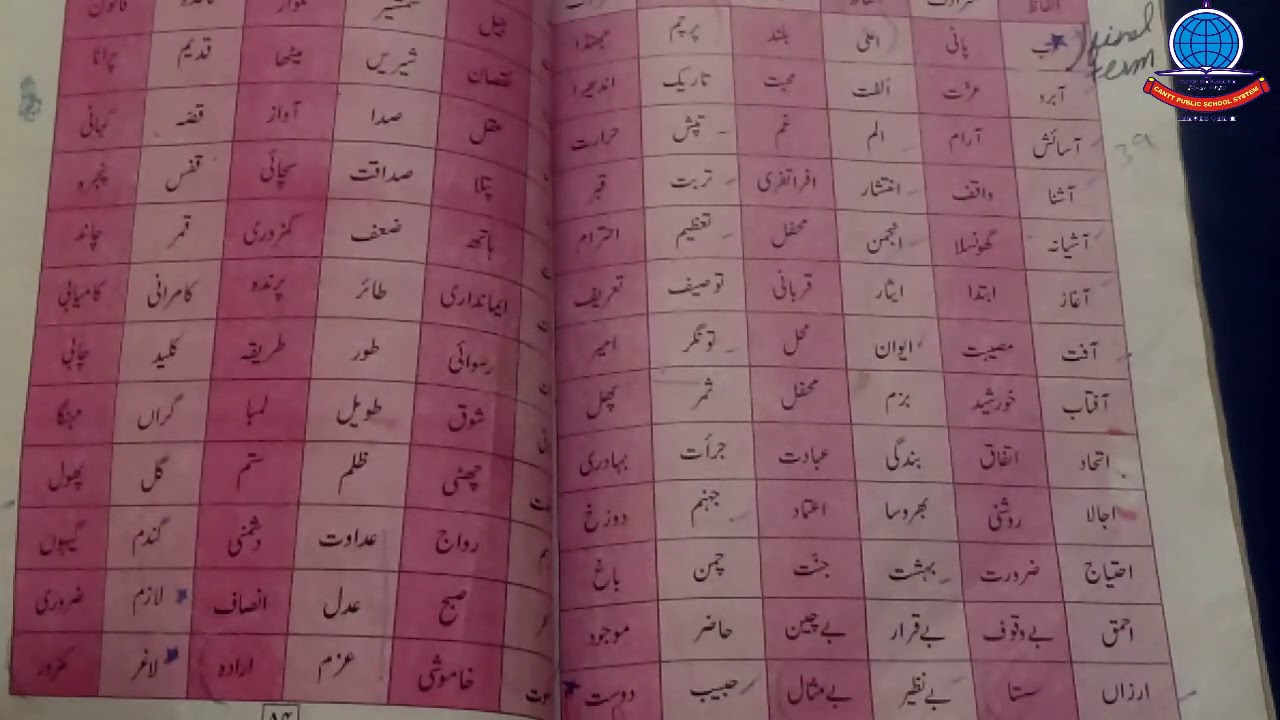 final
term
CANTT PUBLIC SCHOOL SYSTEM
آب پانی اعلیٰ بلند پرچم جھنڈا
آبرو عزت اُلفت محبت تاریک اندھیرا
آسائش آرام الم غم تپش حرارت
آشنا واقف انتشار افراتفری تربت قبر
آشیانہ گھونسلا انجمن محفل تعظیم احترام
آغاز ابتدا ایثار قربانی توصیف تعریف
آفت مصیبت ایوان محل تونگر امیر
آفتاب خورشید بزم محفل ثمر پھل
اتحاد اتفاق بندگی عبادت جرأت بہادری
اجالا روشنی بھروسا اعتماد جہنم دوزخ
احتیاج ضرورت بہشت جنّت چمن باغ
احمق بے وقوف بے قرار بے چین حاضر موجود
ارزاں سستا بے نظیر بے مثال حبیب دوست
بیل شمشیر تلوار قاعدہ قانون
نقصان شیریں میٹھا قدیم پرانا
عقل صدا آواز قصّہ کہانی
پتلا صداقت سچائی قفس پنجرہ
ہاتھ ضعف کمزوری قمر چاند
ایمانداری طائر پرندہ کامرانی کامیابی
رسوائی طور طریقہ کلید چابی
شوق طویل لمبا گراں مہنگا
چھٹی ظلم ستم گل پھول
رواج عداوت دشمنی گندم گیہوں
صبح عدل انصاف لازم ضروری
خاموشی عزم ارادہ لاغر کمزور